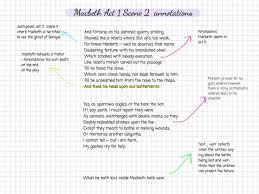 Macbeth Act 1 Scene 2 annotations
Juxtaposes act 3 scene 4
where Macbeth is horrified
to see the ghost of Banquo
Macbeth beheads a traitor
- foreshadows his own death
at the end
of the play
And Fortune, on his damned quarry smiling,
Showed like a rebel's whore. But all's too weak,
For brave Macbeth – well he deserves that name
Disdaining Fortune, with his brandished steel,
Which smoked with bloody execution,
Like Valour's minion carved out his passage
Till he faced the slave,
Which ne'er shook hands, nor bade farewell to him,
Till he unseamed him from the nave to th'chaps,
And fixed his head upon our battlements.
Yes, as sparrows, eagles, or the hare the lion.
If I say sooth, I must report they were
As cannons over-charged with double cracks,
So they doubly redoubled strokes upon the foe.
Except they meant to bathe in reeking wounds,
Or memorise another Golgotha,
I cannot tell – but I am faint,
My gashes cry for help.
What he hath lost, noble Macbeth hath won.
Foreshadows
Macbeth's death in
act 5
Macbeth praised for
good
however
violence seen to
'lost/won'
reflects what
the witches say
about the battle
being lost and won
- thinks that the
witches can predict
the future